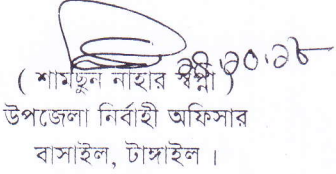 ২১.১০.১৮
( শামছুন নাহার স্বপ্না )
উপজেলা নির্বাহী অফিসার
বাসাইল, টাঙ্গাইল ।